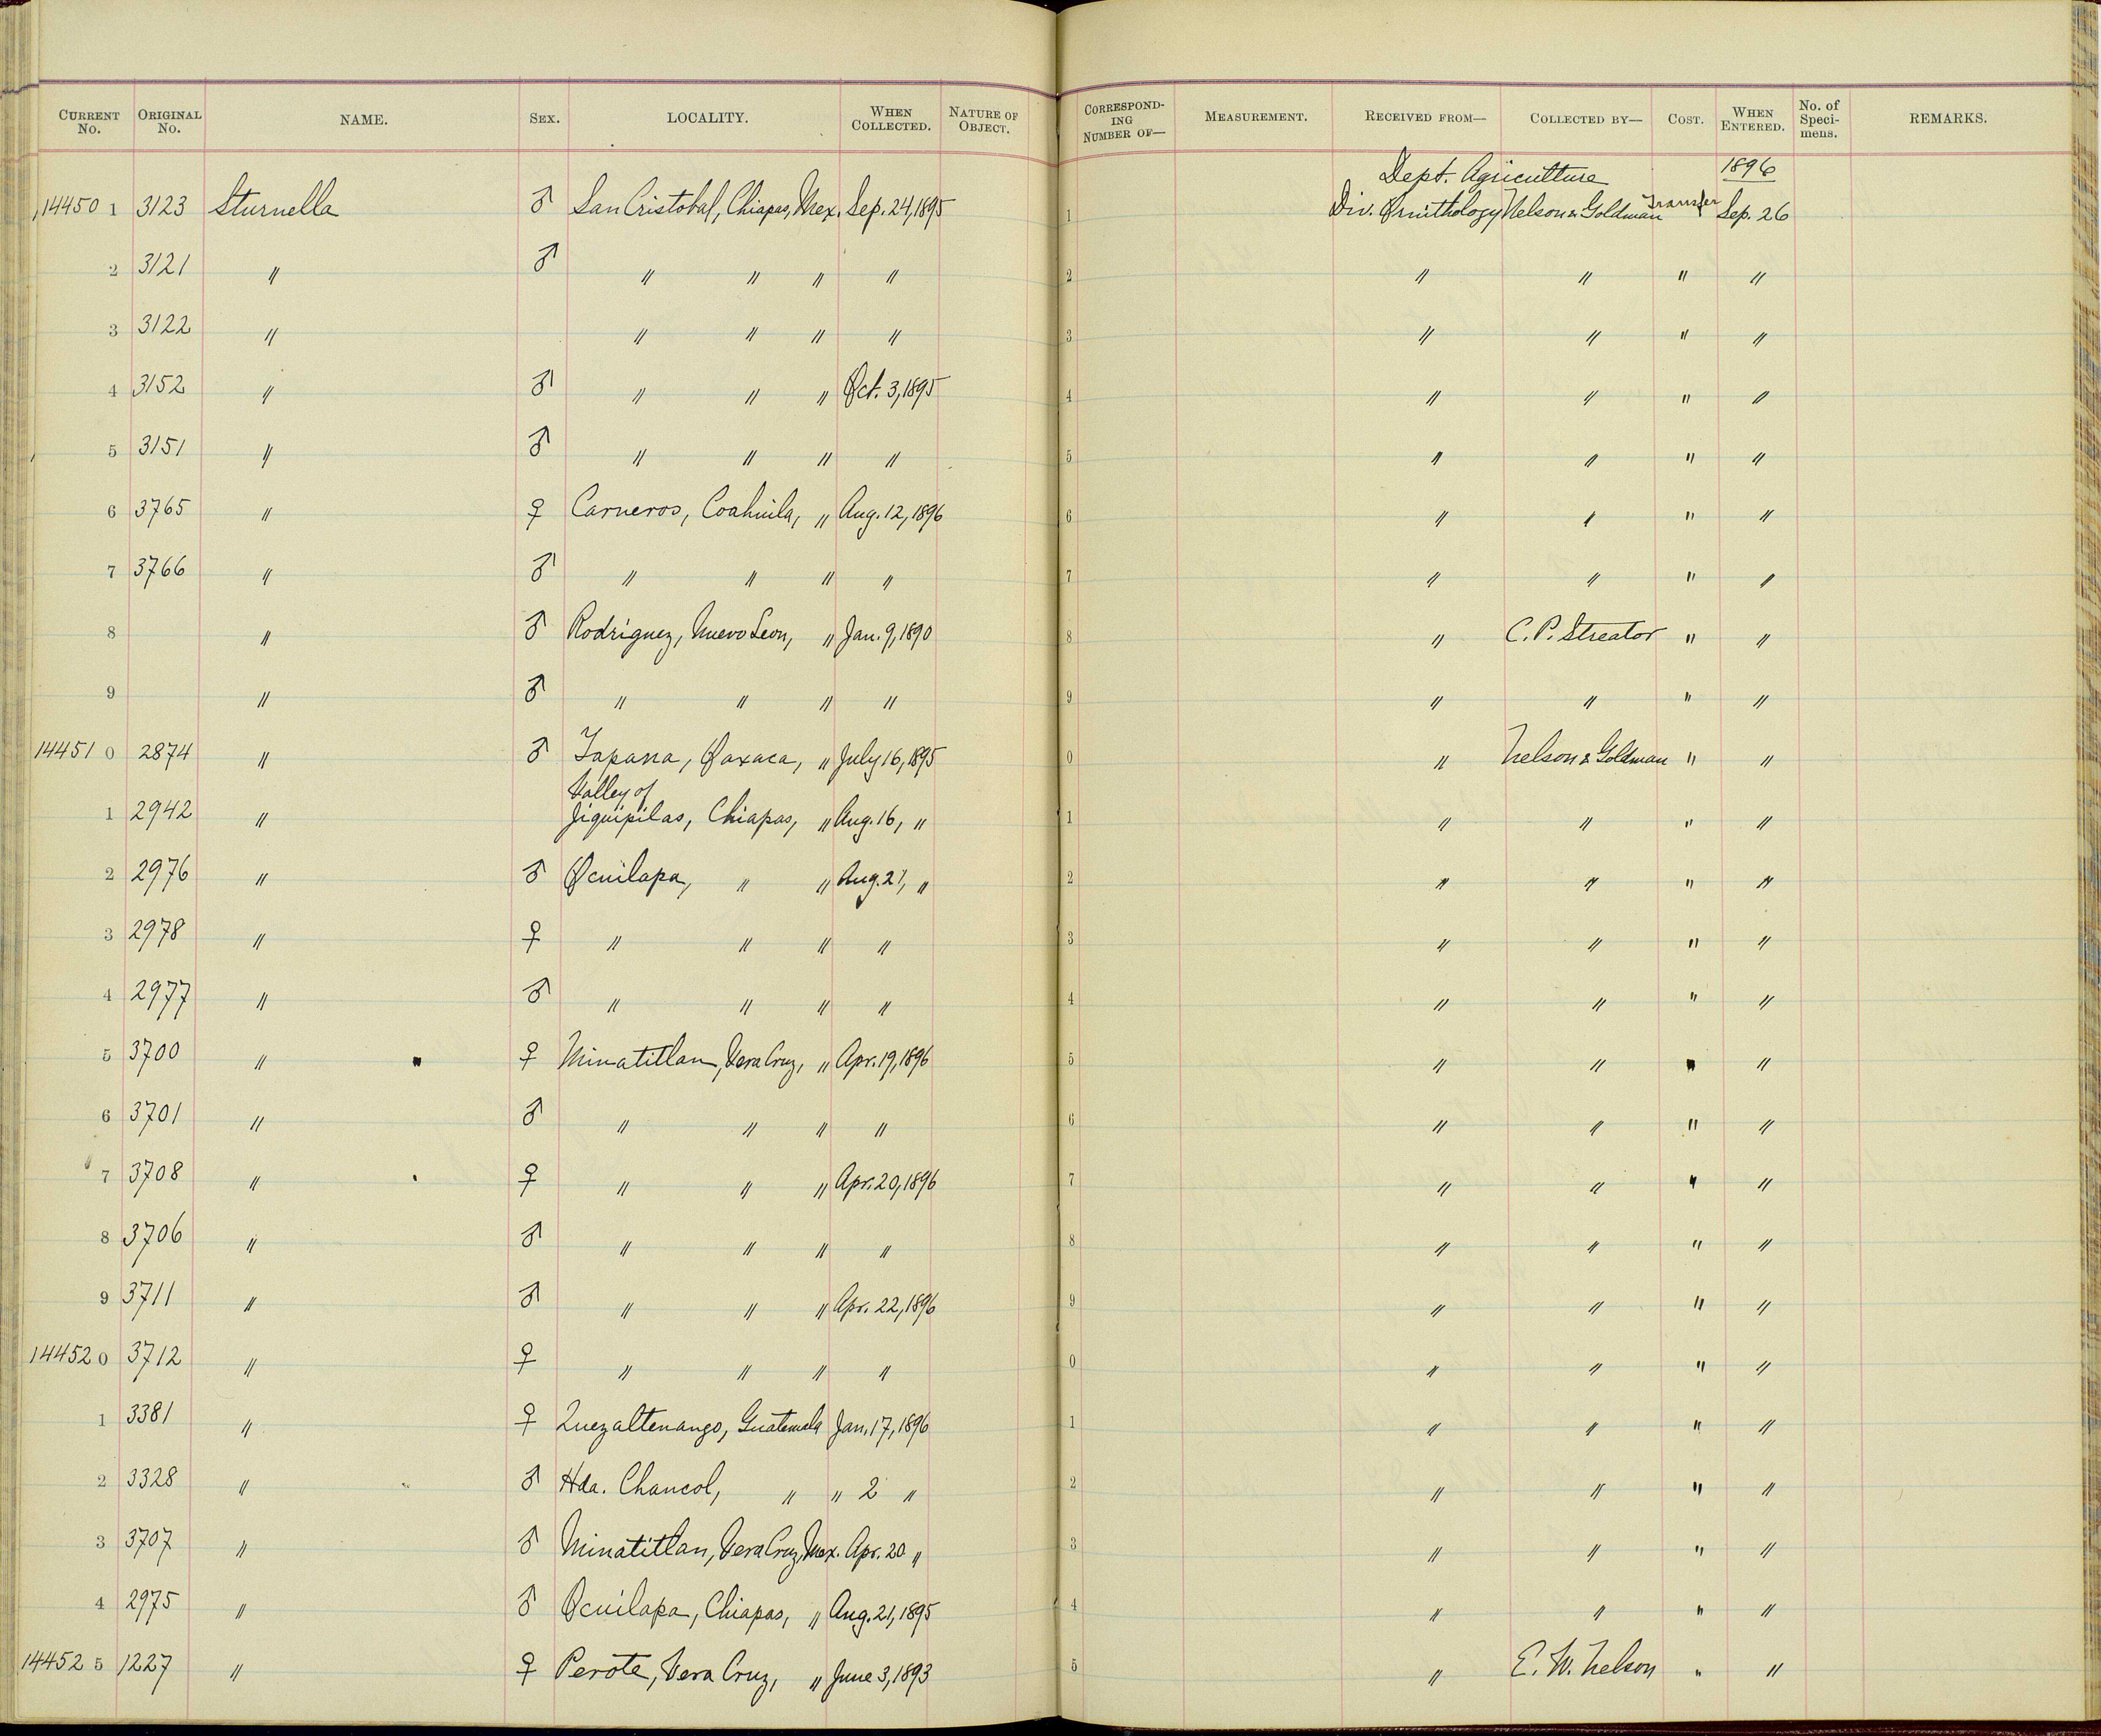 CURRENT No. ORIGINAL No. NAME. SEX. LOCALITY. WHEN COLLECTED. NATURE OF OBJECT. CORRESPONDING NUMBER OF— MEASUREMENT. RECEIVED FROM— COLLECTED BY— COST. WHEN ENTERED. No. of Specimens. REMARKS.
Dept. Agriculture 1896
14450 1 3123 Sturnella ♂ San Cristobal, Chiapas, Mex. Sep. 24, 1895 1 Div. Ornithology Nelson & Goldman Transfer Sep. 26
2 3121 " ♂ " " " " 2 " " " "
3 3122 " " " " " 3 " " " "
4 3152 " ♂ " " " Oct. 3, 1895 4 " " " "
5 3151 " ♂ " " " " 5 " " " "
6 3765 " ♀ Carneros, Coahuila, " Aug. 12, 1896 6 " " " "
7 3766 " ♂ " " " " 7 " " " "
8 " ♂ Rodriguez, Nuevo Leon, " Jan. 9, 1890 8 " C. P. Streator " "
9 " ♂ " " " " 9 " " " "
14451 0 2874 " ♂ Tapana, Oaxaca, " July 16, 1895 0 " Nelson & Goldman " "
Valley of
1 2942 " Jiquipilas, Chiapas, " Aug. 16, " 1 " " " "
2 2976 " ♂ Ocuilapa, " " Aug. 21, " 2 " " " "
3 2978 " ♀ " " " " 3 " " " "
4 2977 " ♂ " " " " 4 " " " "
5 3700 " " ♀ Minatitlan, Vera Cruz, " Apr. 19, 1896 5 " " " "
6 3701 " ♂ " " " " 6 " " " "
7 3708 " ♀ " " " Apr. 20, 1896 7 " " " "
8 3706 " ♂ " " " " 8 " " " "
9 3711 " ♂ " " " Apr. 22, 1896 9 " " " "
14452 0 3712 " ♀ " " " " 0 " " " "
1 3381 " ♀ Quezaltenango, Guatemala Jan. 17, 1896 1 " " " "
2 3328 " ♂ Hda. Chancol, " " 2 " 2 " " " "
3 3707 " ♂ Minatitlan, Vera Cruz, Mex. Apr. 20 " 3 " " " "
4 2975 " ♂ Ocuilapa, Chiapas, " Aug. 21, 1895 4 " " " "
14452 5 1227 " ♀ Perote, Vera Cruz, " June 3, 1893 5 " E. W. Nelson " "